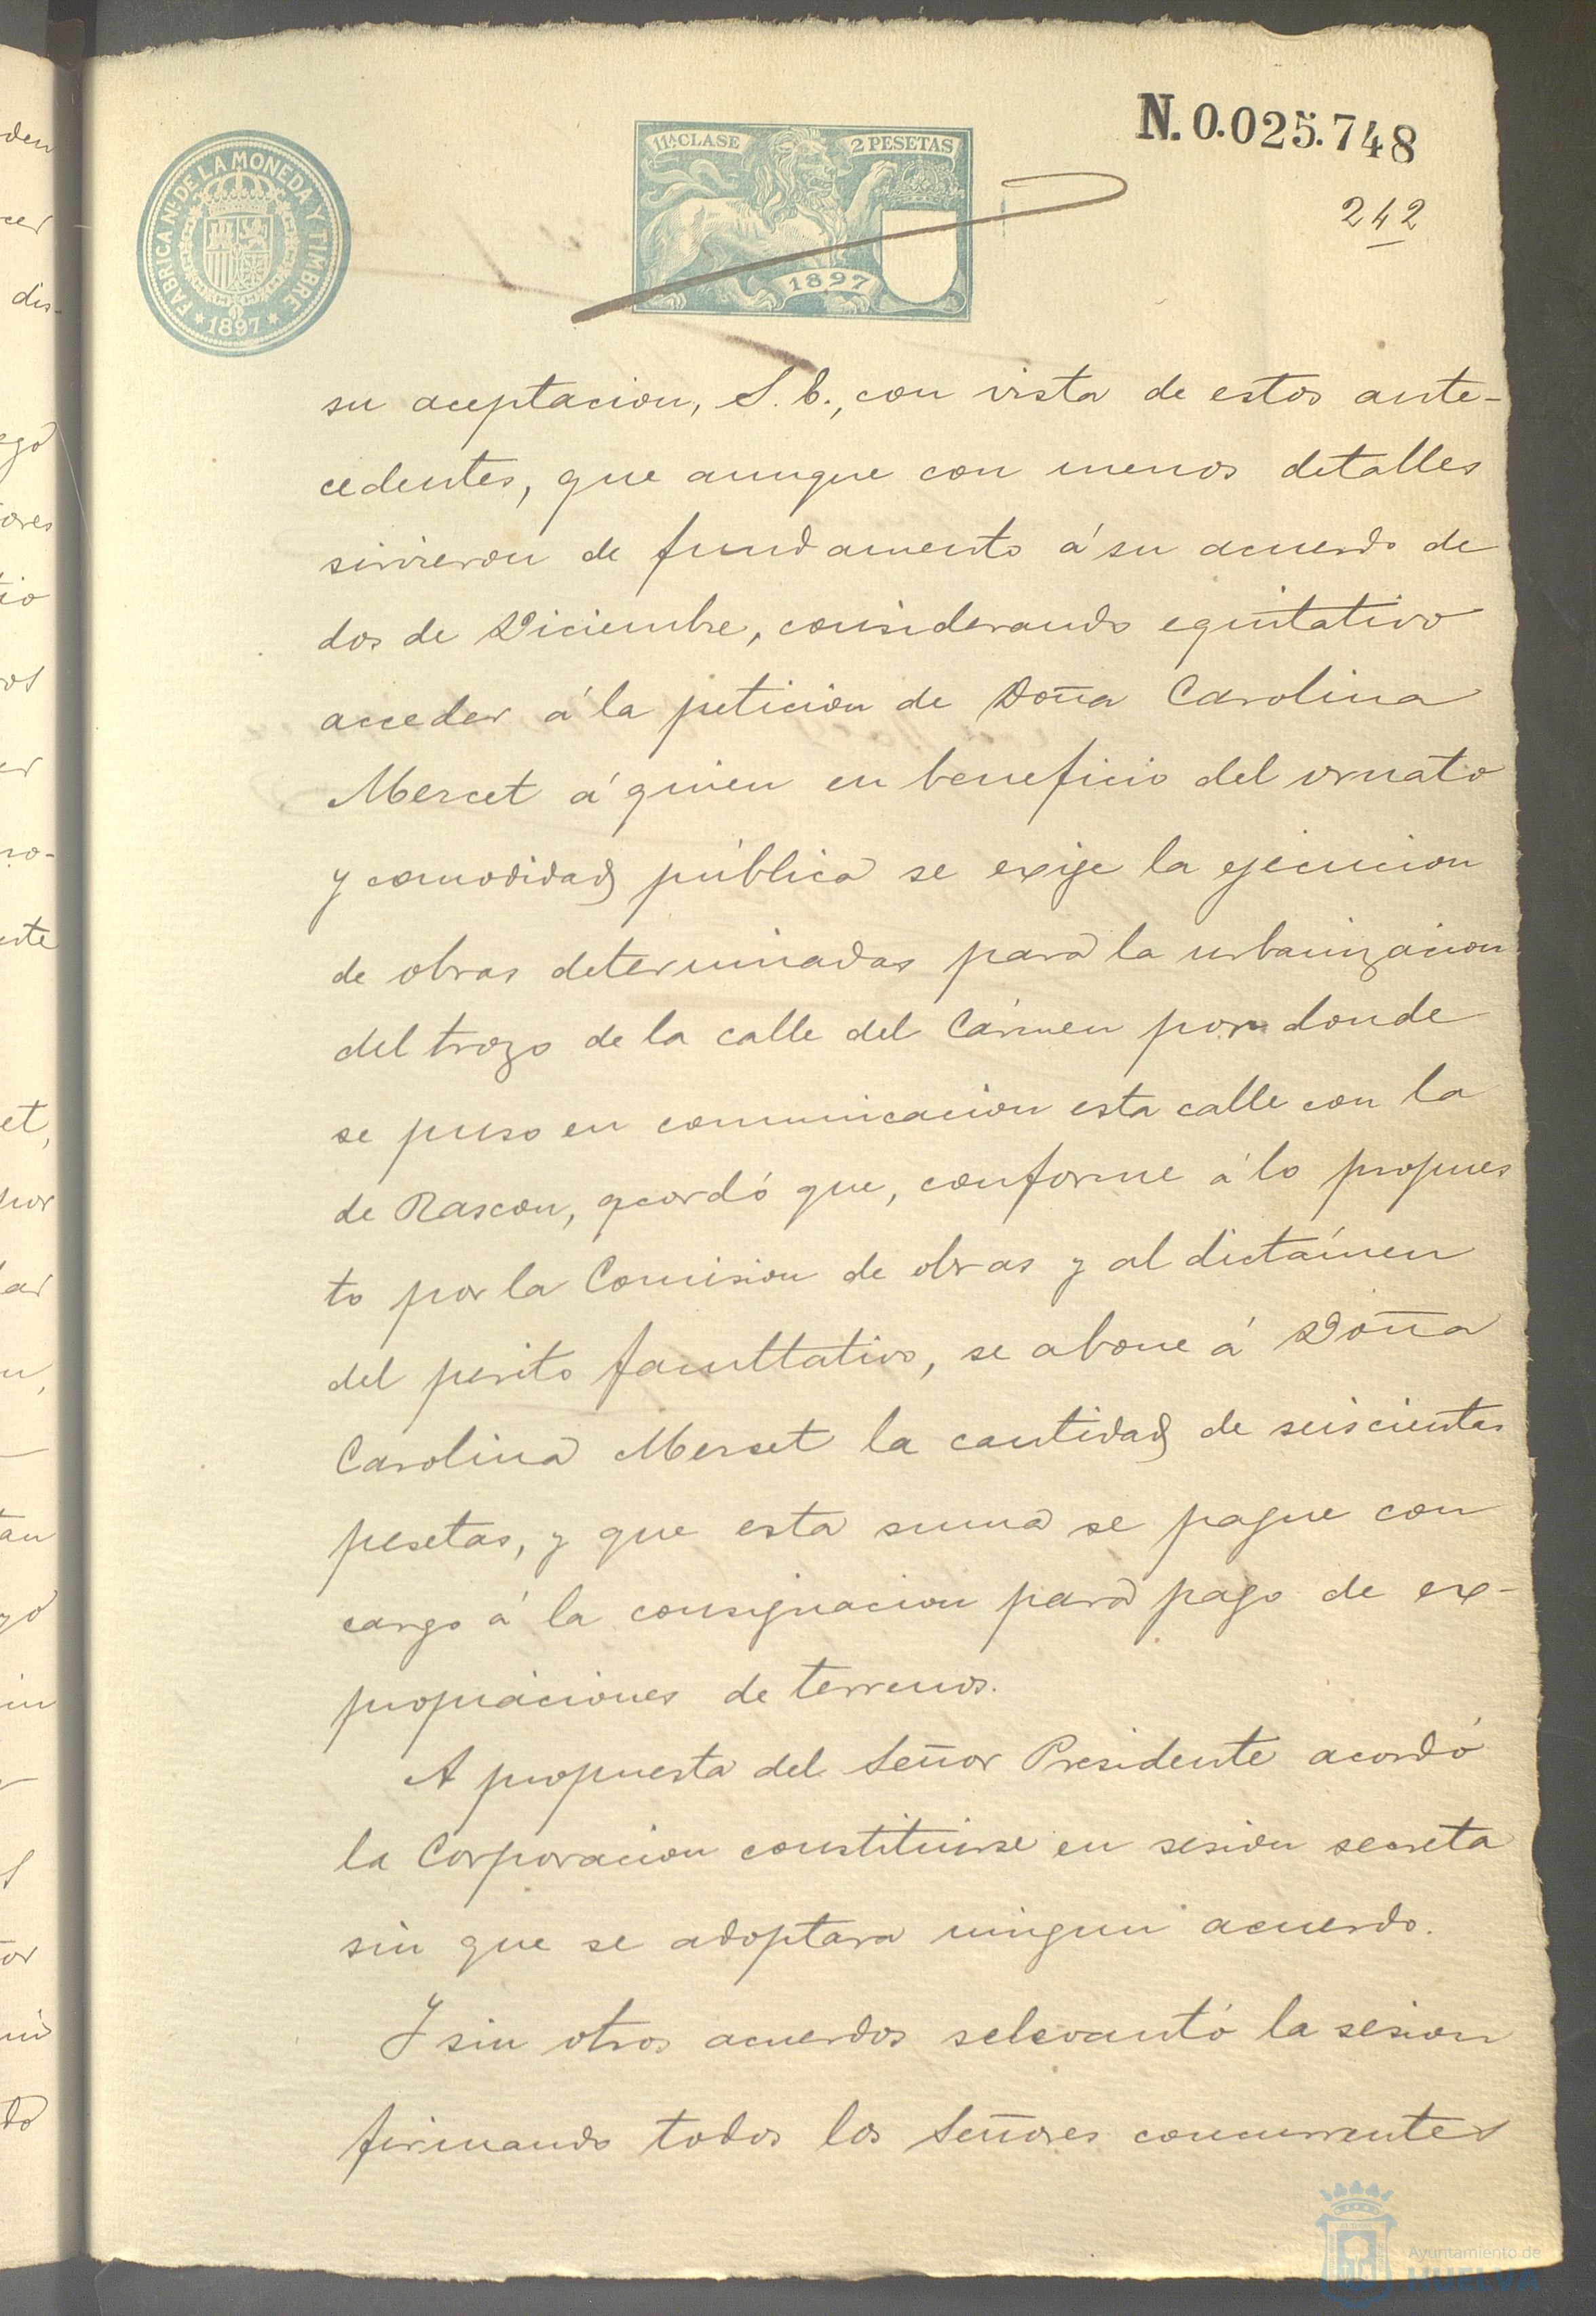 N. 0.025.748
11ª CLASE
2 PESETAS
1897
FABRICA NL. DE LA MONEDA Y TIMBRE
* 1897 *
242
su aceptacion, S. E., con vista de estos ante-
cedentes, que aunque con menos detalles
sirvieron de fundamento á su acuerdo de
dos de Diciembre, considerando equitativo
acceder á la peticion de Doña Carolina
Mercet á quien en beneficio del ornato
y comodidad pública se exije la ejecucion
de obras determinadas para la urbanizacion
del trozo de la calle del Cármen por donde
se puso en comunicacion esta calle con la
de Rascon, acordó que, conforme á lo propues
to por la Comision de obras y al dictámen
del perito facultativo, se abone á Doña
Carolina Merset la cantidad de seiscientas
pesetas, y que esta suma se pague con
cargo á la consignacion para pago de ex-
propiaciones de terrenos.
A propuesta del Señor Presidente acordó
la Corporacion constituirse en sesion secreta
sin que se adoptara ningun acuerdo.
Y sin otros acuerdos se levantó la sesion
firmando todos los Señores concurrentes
Ayuntamiento de
HUELVA